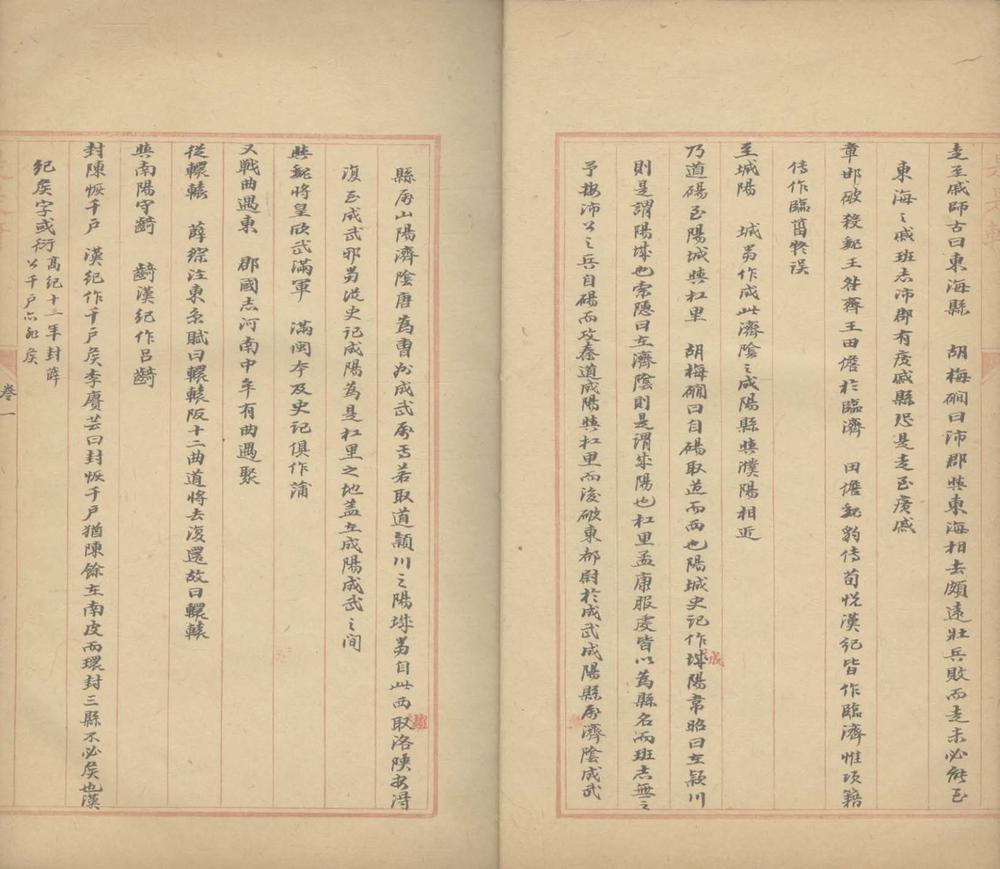 走至戚師古曰東海縣　胡梅磵曰沛郡與東海相去頗遠壯兵敗而走未必能至
東海之戚班志沛郡有廣戚縣恐是走至廣戚
章邯破殺魏王咎齊王田儋於臨濟　田儋魏豹傳荀悅漢紀皆作臨濟惟項籍
傳作臨菑幣誤
至城陽　城當作成此濟陰之成陽縣與濮陽相近
乃道碭至陽城與杠里　胡梅磵曰自碭取道而西也陽城史記作城陽韋昭曰在潁川
成
則是謂陽城也索隱曰在濟陰則是謂城陽也杠里孟康服虔皆以為縣名而班志無之
予按沛公之兵自碭而攻秦道成陽與杠里而後破東郡尉於成武成陽縣屬濟陰成武
縣屬山陽濟陰唐為曹州成武屬焉若取道潁川之陽城當自此西取洛陝安得
復至成武邪當從史記成陽為是杠里之地蓋在成陽成武之間
與魏將皇欣武滿軍　滿閩本及史記俱作蒲
又戰曲遇東　郡國志河南中牟有曲遇聚
從轘轅　薛綜注東京賦曰轘轅阪十二曲道將去復還故曰轘轅
與南陽守齮　齮漢紀作呂齮
封陳恢千戶　漢紀作千戶矦李賡芸曰封恢千戶猶陳餘在南皮而環封三縣不必矦也漢
紀矦字或衍高紀十二年封薛公千戶亦非矦
卷一